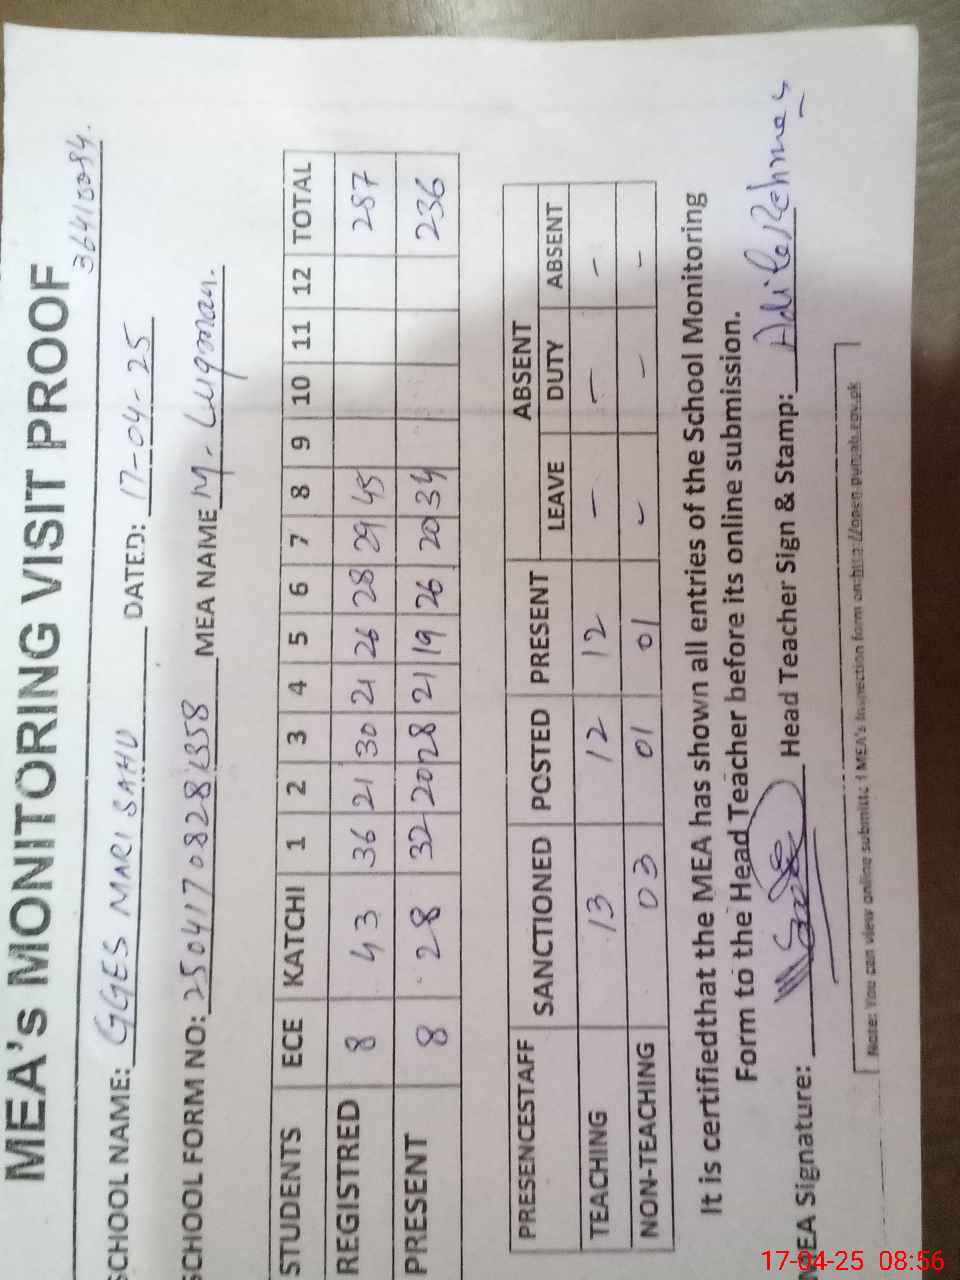 MEA's MONITORING VISIT PROOF
36410084.
SCHOOL NAME: GGES MARI SAHU DATED: 17-04-25
SCHOOL FORM NO: MEA NAME M. Luqman.
STUDENTS ECE KATCHI 1 2 3 4 5 6 7 8 9 10 11 12 TOTAL
REGISTRED 8 43 36 21 30 21 26 28 29 45 287
PRESENT 8 28 32 20 28 21 19 26 20 34 236
PRESENCESTAFF SANCTIONED POSTED PRESENT ABSENT
LEAVE DUTY ABSENT
TEACHING 13 12 12 - - -
NON-TEACHING 03 01 01 - - -
It is certifiedthat the MEA has shown all entries of the School Monitoring
Form to the Head Teacher before its online submission.
MEA Signature: Head Teacher Sign & Stamp:
Note: You can view online submitted MEA's Inspection form on: http://open.punjab.gov.pk
17-04-25 08:56